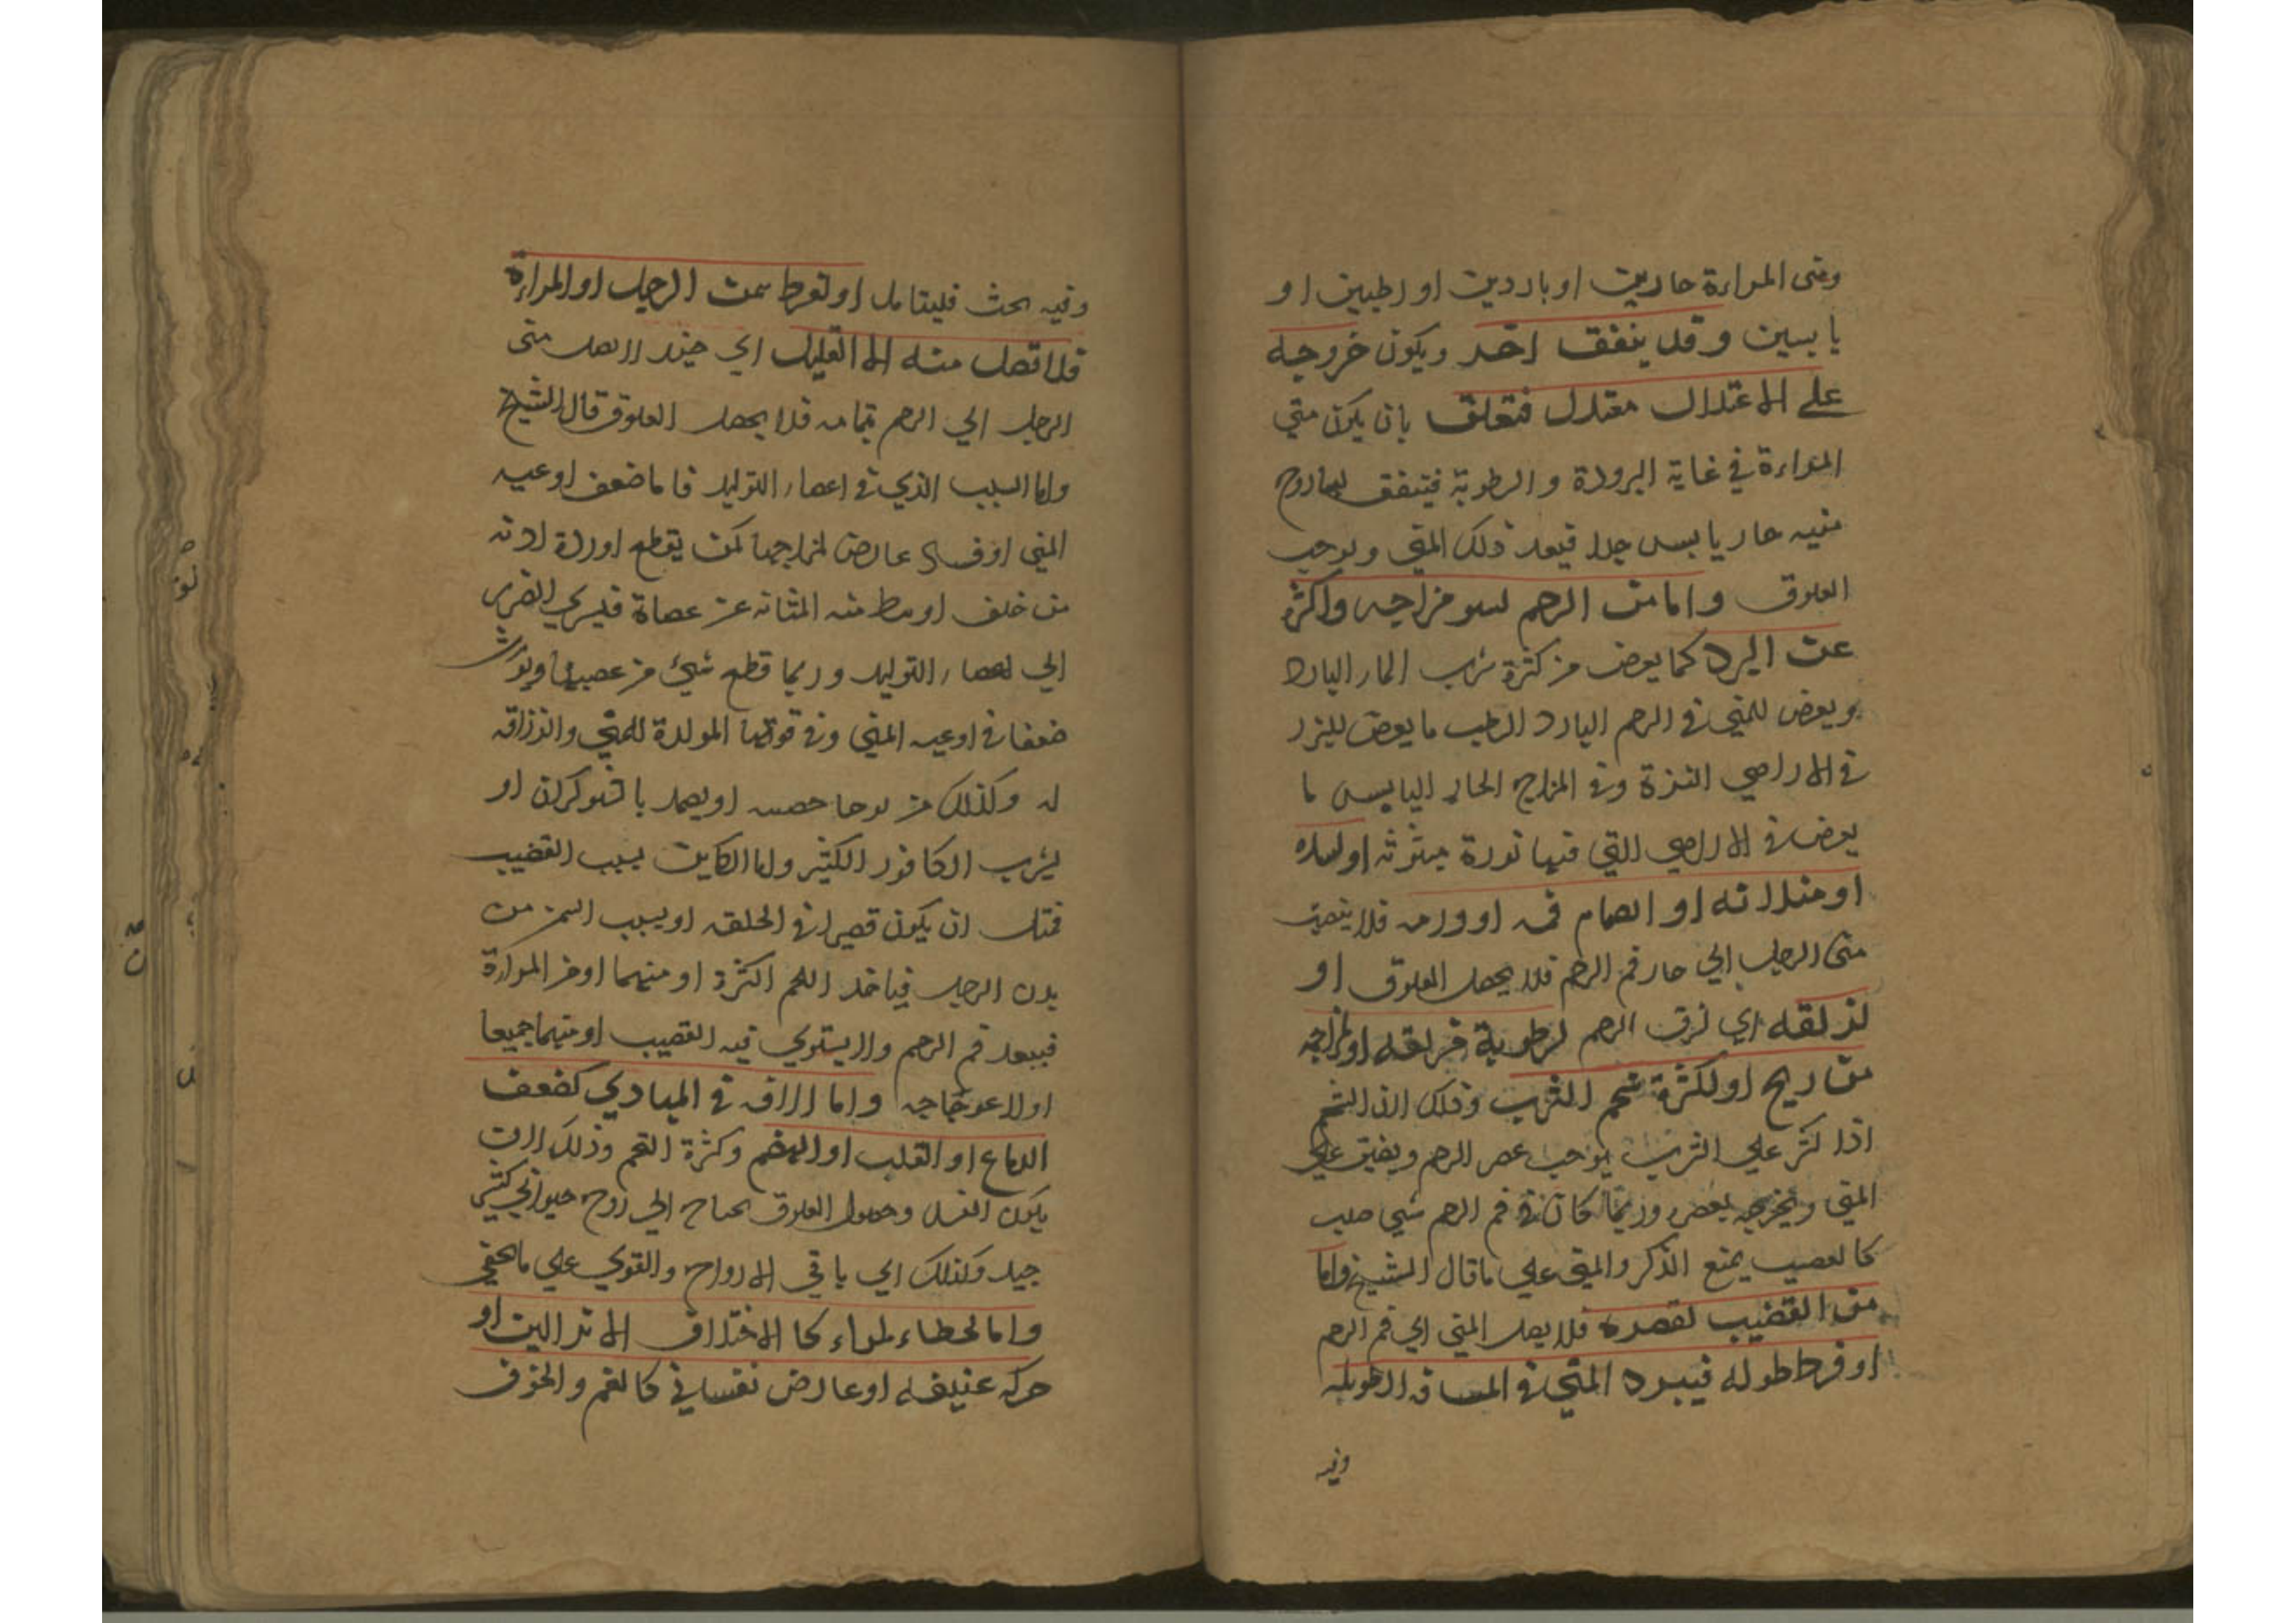 ومنى المراءة حارين او باردين او رطبين او
يابسين وقد يتفق احد ويكون خروجه
علي الاعتدال معتدل فتعلق بان يكون مني
المراءة في غاية البرودة والرطوبة فيتفق لها زوج
منيه حار يابس جدا فيعد ذلك المني ويوجب
العلوق واما من الرحم لسو مزاجه واكثره
عن البرد كما يعرض من كثرة شرب الماء البارد
ويعرض للمني في الرحم البارد الرطب ما يعرض للبزر
في الاراضي النزة وفي المزاج الحار اليابس ما
يعرض في الاراضي التي فيها نورة مبثوثه او لسده
او منلاته او انضمام فمه او ورمه فلا ينصب
منى الرجل الي حار فم الرحم فلا يحصل العلوق او
لزلقه اي لزق الرحم لرطوبة مزلقه او لمزاجه
من ريح او لكثرة شحم الثرب وذلك لان الشحم
اذا كثر علي الثرب يوجب عصر الرحم ويضيق علي
المني ويخرجه بعض وربما كان في فم الرحم شي صلب
كالعصيب يمنع الذكر والمني علي ما قال الشيخ واما
من القضيب لقصره فلا يصل المني الي فم الرحم
او فرط طوله فيبرد المني في المسافه الطويله
وفيه
وفيه بحث فليتامل او لفرط سمن الرجل او المراءة
فلا تصل منه الا القليل اي حينئذ لا يصل منى
الرجل الي الرحم بتمامه فلا يحصل العلوق قال الشيخ
واما السبب الذي في اعضاء التوليد فاما ضعف اوعيه
المني او فساد عارض لمزاجها كمن يقطع اوردة اذنه
من خلف او بط منه المثانه عن حصاة فيسري الضرر
الي اعضاء التوليد وربما قطع شئ من عصبها ويورث
ضعفا في اوعيه المني وفي قوتها المولدة للمني والزراقه
له وكذلك من يوجا خصيه او يضمد بالشوكران او
يشرب الكافور الكثير واما الكاين بسبب القضيب
فمثل ان يكون قصيرا في الخلقه او بسبب السمن من
بدن الرجل فياخذ اللحم اكثره او منهما او من المراءة
فيبعد فم الرحم ولا يستوي فيه القضيب او منهما جميعا
او لاعوجاجه واما لافه في المبادي كضعف
الدماغ او القلب او الهضم وكثرة التخم وذلك لان
يكون النسل وحصول العلوق يحتاج الي روح حيواني كثير
جيد وكذلك الي باقي الارواح والقوي علي ما لا يخفي
واما لخطاء طراء كالاختلاف الانزالين او
حركه عنيفه او عارض نفساني كالغم والخوف